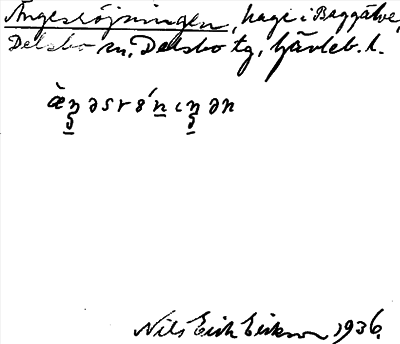 Ängesröjningen, hage i Baggätve,
Delsbo sn, Delsbo tg, Gävleb. l.
æ̀ŋəsrö́nɩŋən
Nils Erik Erikson 1936.